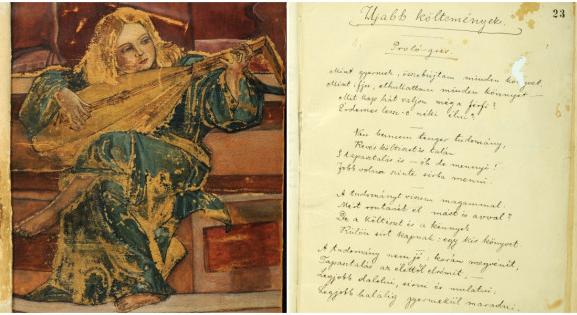 23
Ujabb költemények.
Prológus.
Mint gyermek, összebújtam minden könyvet
Mint ifju, elhullattam minden könnyet —
Mit hagyhát várjon még a férfi?
Érdemes lesz-e néki élni?
Van bennem tenger tudomány,
Kevés költészet is talán
S tapasztalás is — óh de mennyi!
Jobb volna szinte sírba menni.
A tudományt viszem magammal:
Mert rontanék el mást is avval?
De a költészet és a könnyek
Külön sírt kapnak: egy kis könyvet.
A tudomány nem jó: korán megvénit,
Tapasztalás az élettől elrémit, —
Legjobb dalolni, sírni és mulatni,
Legjobb halálig gyermekül maradni.